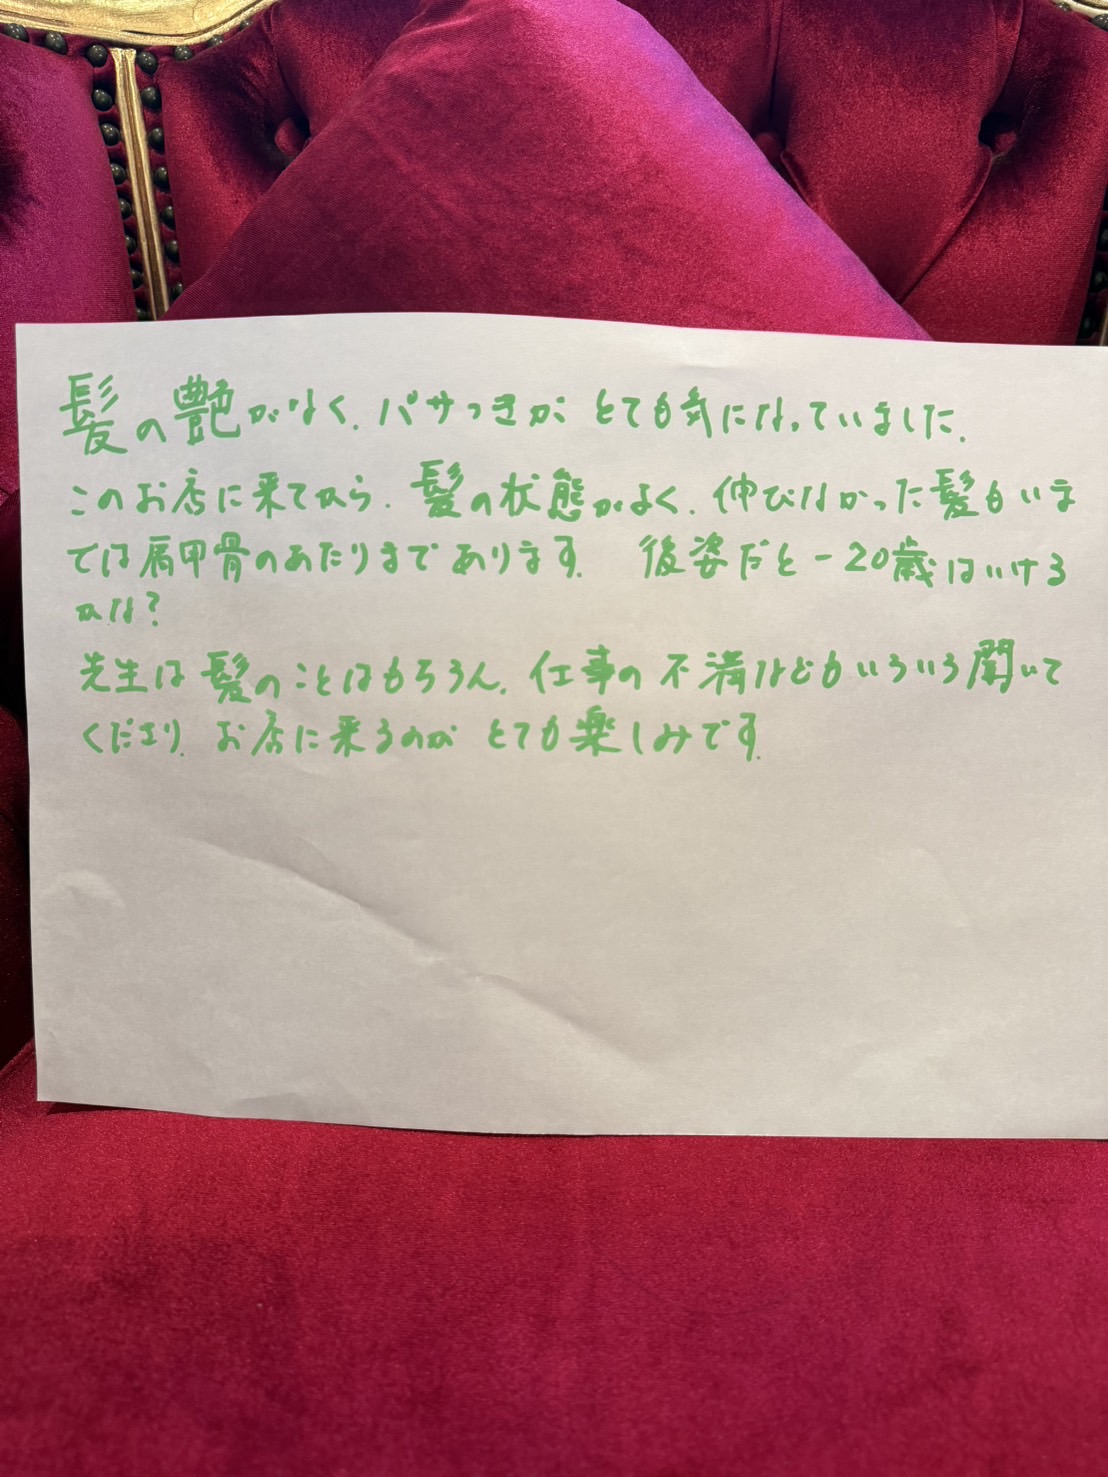 髪の艶がなく、パサつきがとても気になっていました。
このお店に来てから、髪の状態がよく、伸びなかった髪もいま
では肩甲骨のあたりまであります。 後姿だと-20歳はいける
かな?
先生は髪のことはもちろん、仕事の不満などもいろいろ聞いて
くださり、お店に来るのがとても楽しみです。